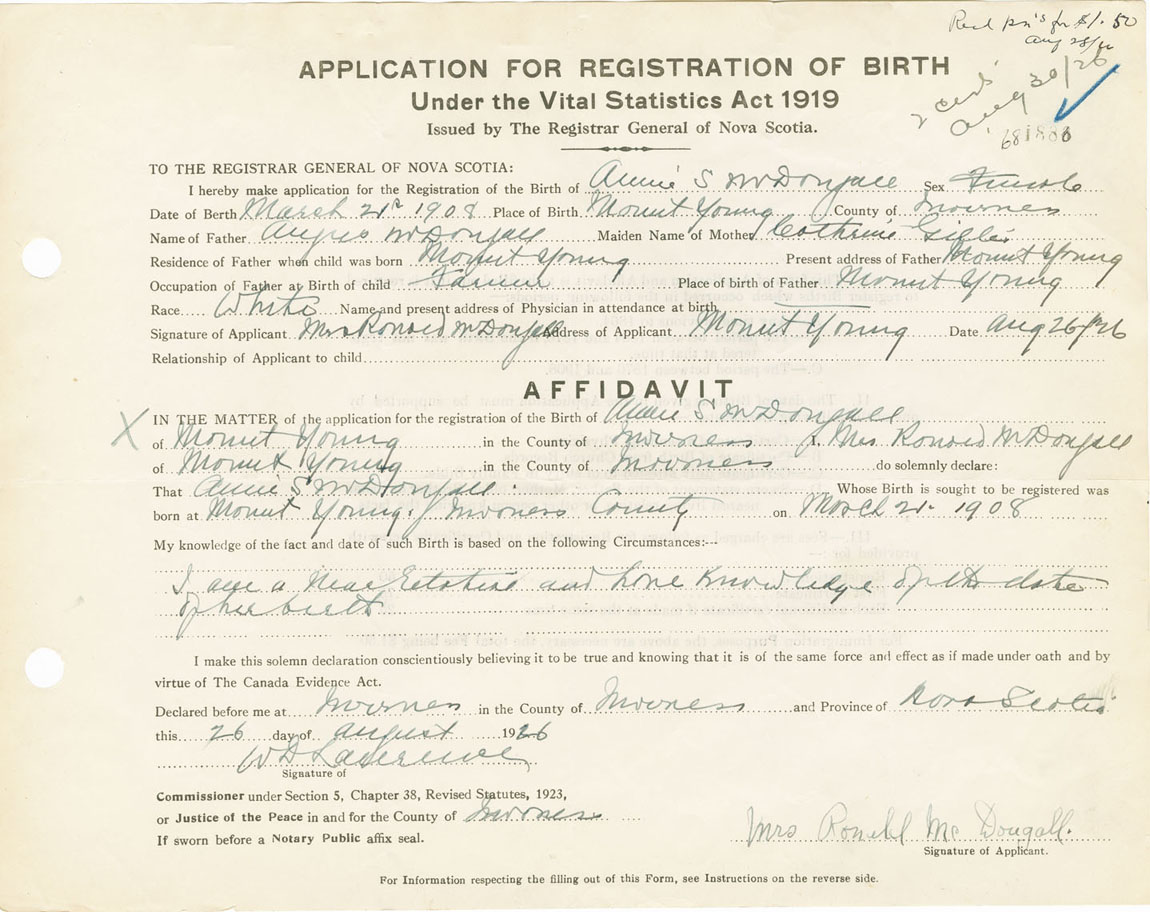 Recd pn's for $1.50
Aug 28/26
2 certs
Aug 30/26
681886
APPLICATION FOR REGISTRATION OF BIRTH
Under the Vital Statistics Act 1919
Issued by The Registrar General of Nova Scotia.
TO THE REGISTRAR GENERAL OF NOVA SCOTIA:
I hereby make application for the Registration of the Birth of Annie S McDougall Sex Female
Date of Berth March 21st 1908 Place of Birth Mount Young County of Inverness
Name of Father Angus McDougall Maiden Name of Mother Catherine Gillis
Residence of Father when child was born Mount Young Present address of Father Mount Young
Occupation of Father at Birth of child Farmer Place of birth of Father Mount Young
Race White Name and present address of Physician in attendance at birth
Signature of Applicant Mrs Ronald McDougall Address of Applicant Mount Young Date Aug 26th/26
Relationship of Applicant to child
AFFIDAVIT
X IN THE MATTER of the application for the registration of the Birth of Annie S McDougall
of Mount Young in the County of Inverness I, Mrs Ronald McDougall
of Mount Young in the County of Inverness do solemnly declare:
That Annie S McDougall Whose Birth is sought to be registered was
born at Mount Young, Inverness County on March 21st 1908
My knowledge of the fact and date of such Birth is based on the following Circumstances:---
I am a Near Relative and have Knowledge of the date
of her birth
I make this solemn declaration conscientiously believing it to be true and knowing that it is of the same force and effect as if made under oath and by
virtue of The Canada Evidence Act.
Declared before me at Inverness in the County of Inverness and Province of Nova Scotia
this 26 day of August 1926
W D Lawrence
Signature of
Commissioner under Section 5, Chapter 38, Revised Statutes, 1923,
or Justice of the Peace in and for the County of Inverness
If sworn before a Notary Public affix seal.
Mrs Ronald Mc Dougall.
Signature of Applicant.
For Information respecting the filling out of this Form, see Instructions on the reverse side.